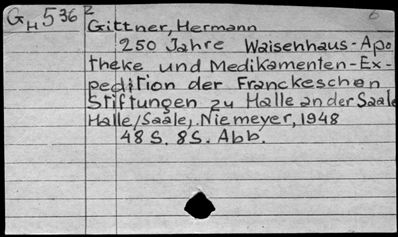 GH 536²
Gittner, Hermann
250 Jahre Waisenhaus-Apo
theke und Medikamenten-Ex-
pedition der Franckeschen
Stiftungen zu Halle an der Saale
Halle/Saale, Niemeyer, 1948
48 S. 8 S. Abb.